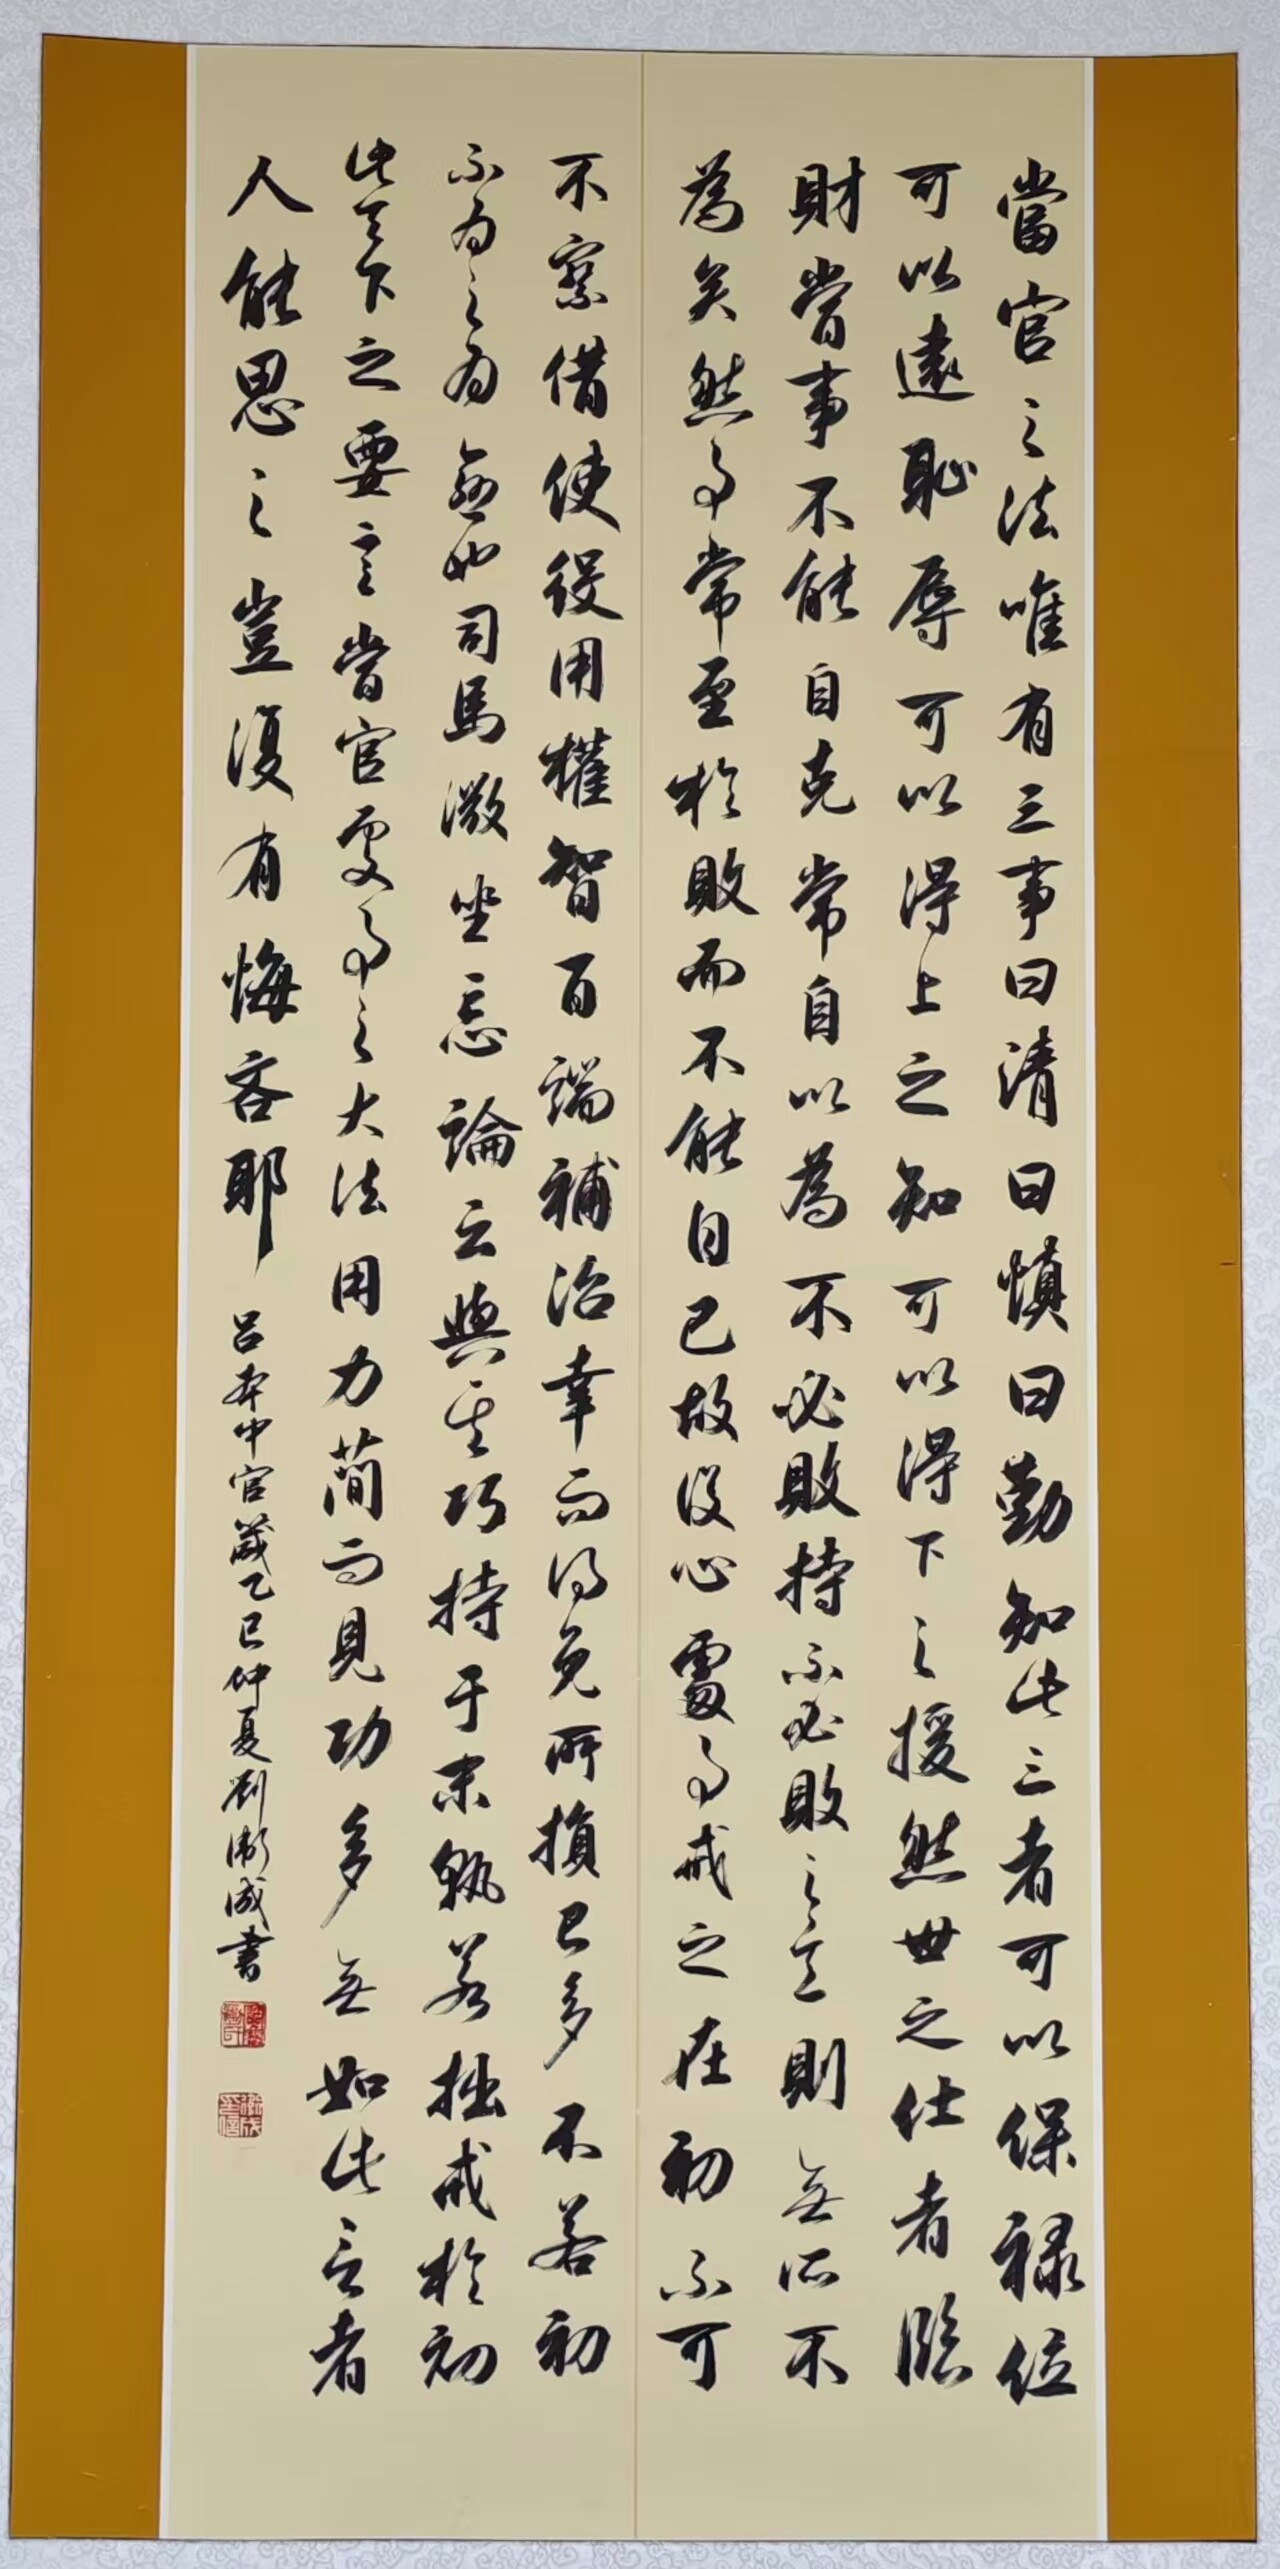 當官之法唯有三事曰清曰慎曰勤知此三者可以保祿位
可以遠恥辱可以得上之知可以得下之援然世之仕者臨
財當事不能自克常自以為不必敗持不必敗之意則無所不
為矣然事常至於敗而不能自已故設心處事戒之在初不可
不察借使役用權智百端補治幸而得免所損已多不若初
不為之為愈也司馬微坐忘論云與其巧持于末孰若拙戒於初
此天下之要言當官處事之大法用力簡而見功多無如此言者
人能思之豈復有悔吝耶 呂本中官箴乙巳仲夏劉衛成書